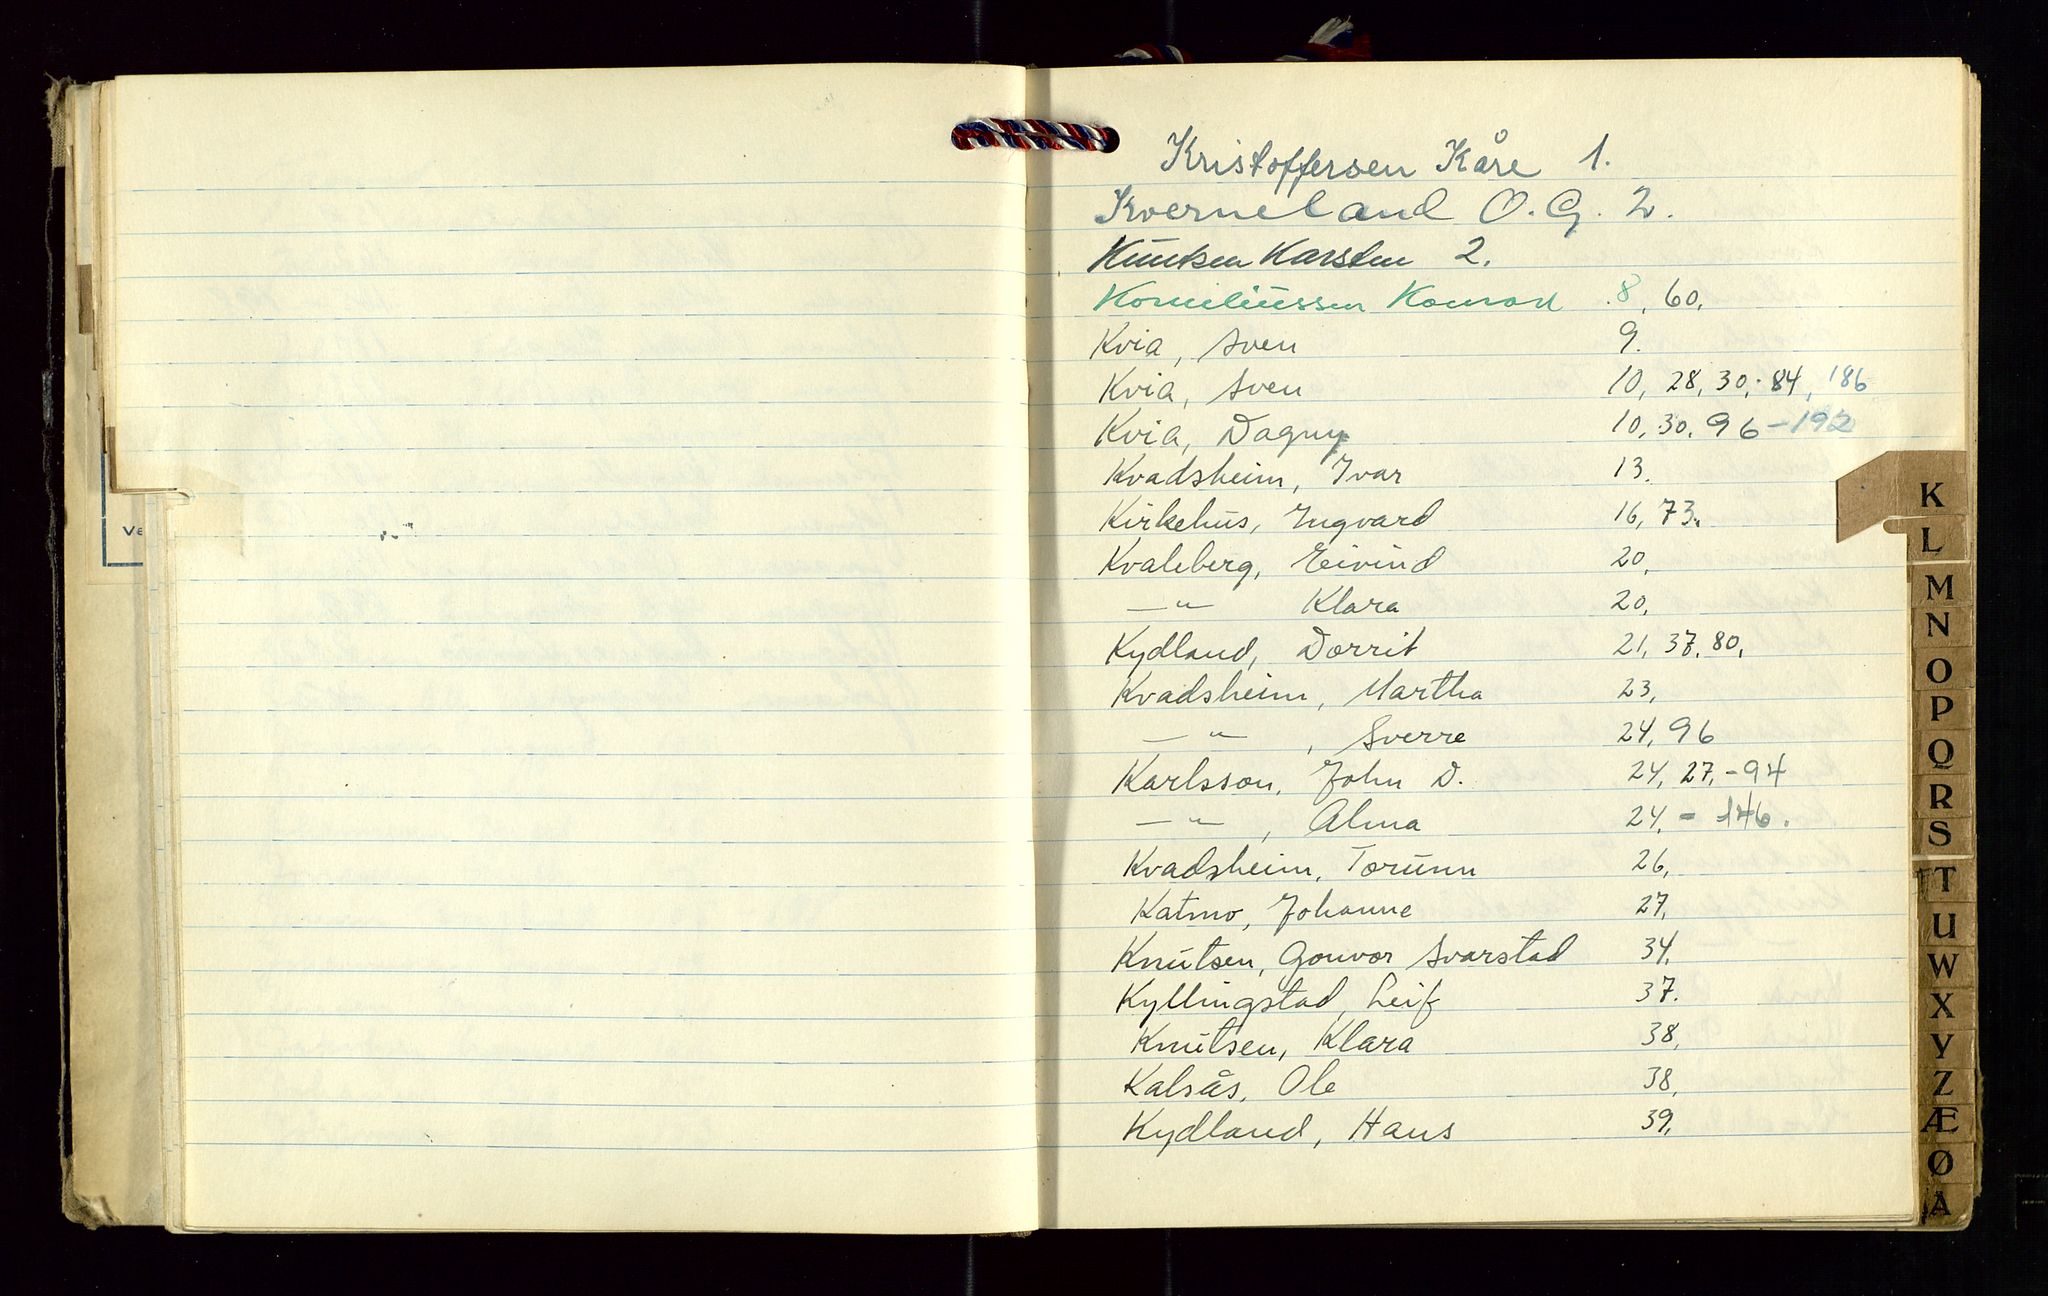 Kristoffersen Kåre 1.
Kverneland O. G. 2.
Knutsen Karsten 2.
Korneliussen Konrad 8, 60.
Kvia, Sven 9.
Kvia, Sven 10, 28, 30, 84, 186
Kvia, Dagny 10, 30, 96 - 192
Kvadsheim, Ivar 13.
Kirkehus, Ingvard 16, 73.
Kvaleberg, Eivind 20,
— " — Klara 20,
Kydland, Dorrit 21, 37, 80,
Kvadsheim, Martha 23,
— " — , Sverre 24, 96
Karlsson, John D. 24, 27, - 94
— " — , Alma 24, - 146.
Kvadsheim, Torunn 26,
Katmo, Johanne 27,
Knutsen, Gonvor Svarstad 34,
Kyllingstad, Leif 37.
Knutsen, Klara 38,
Kalsås, Ole 38,
Kydland, Hans 39,
K
L
M
N
O
P
Q
R
S
T
U
W
X
Y
Z
Æ
Ø
A
Ve